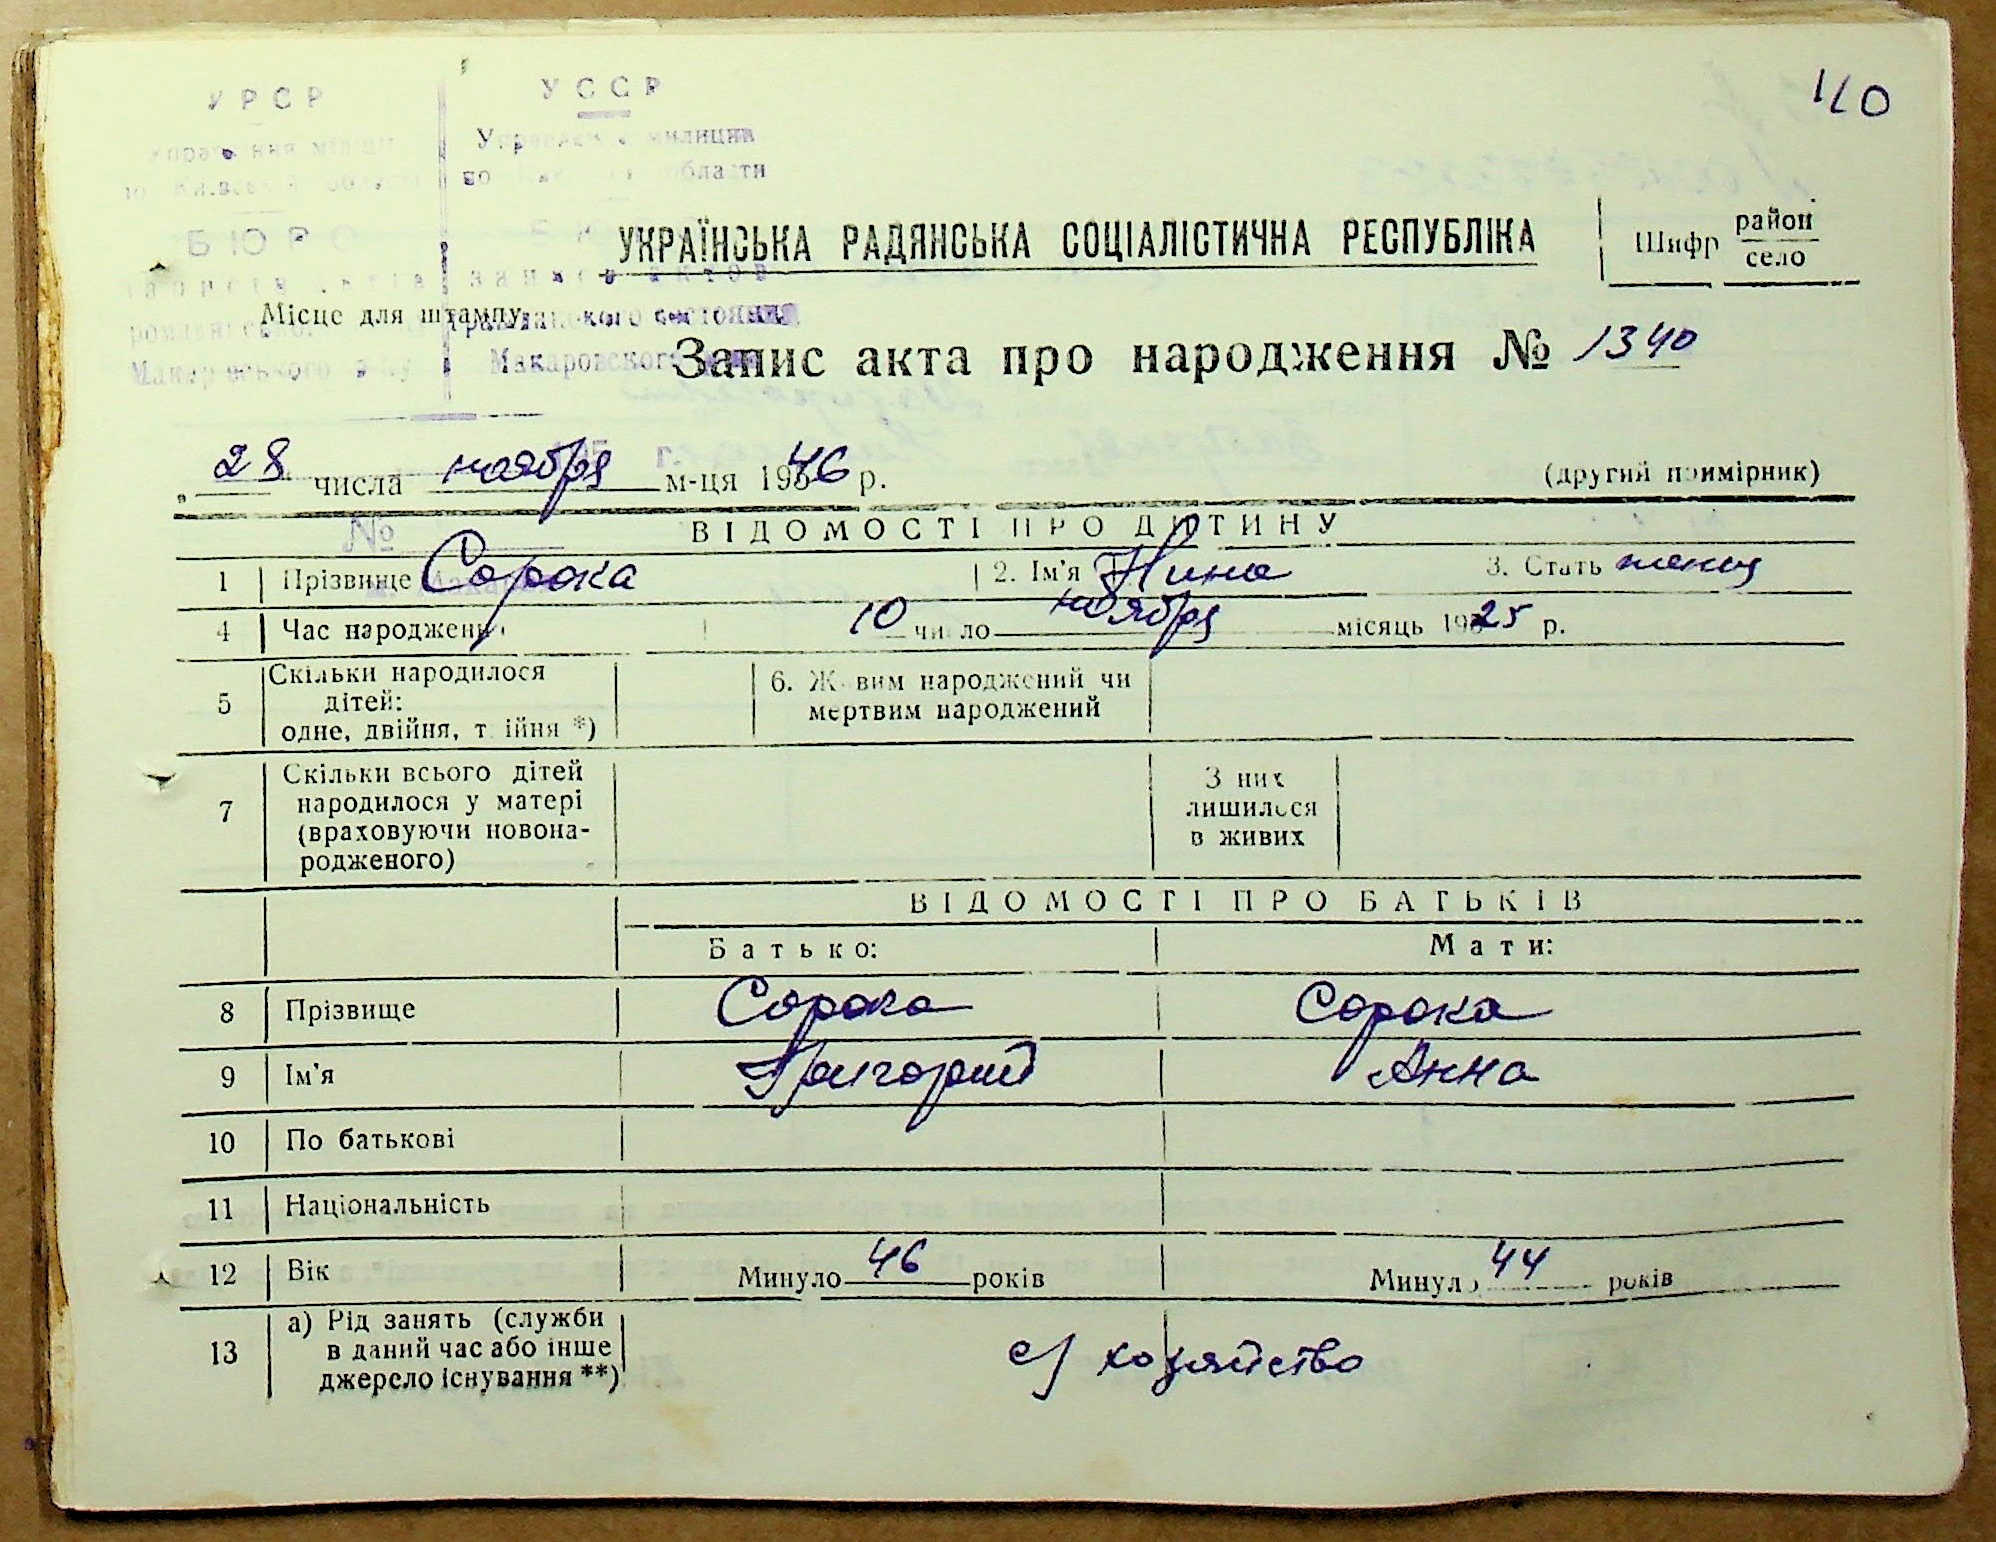 110
УРСР
УССР
Управління міліції
Управление милиции
по Київській області
по области
БЮРО
БЮРО
записів актів
записи актов
гражданского состояния
Макарівського р-ну
Макаровского
УКРАЇНСЬКА РАДЯНСЬКА СОЦІАЛІСТИЧНА РЕСПУБЛІКА
Шифр район
село
Місце для штампу
Запис акта про народження № 1340
„ 28 " числа ноября м-ця 1946 р.
(другий примірник)
№
ВІДОМОСТІ ПРО ДИТИНУ
1 Прізвище Сорока 2. Ім'я Нина 3. Стать женщ
4 Час народження 10 число ноября місяць 1925 р.
5 Скільки народилося
дітей:
одне, двійня, трійня *)
6. Живим народжений чи
мертвим народжений
7 Скільки всього дітей
народилося у матері
(враховуючи новона-
родженого)
З них
лишилося
в живих
ВІДОМОСТІ ПРО БАТЬКІВ
Батько: Мати:
8 Прізвище Сорока Сорока
9 Ім'я Григорий Анна
10 По батькові
11 Національність
12 Вік Минуло 46 років Минуло 44 років
13 а) Рід занять (служби
в даний час або інше
джерело існування **)
с/хозяйство